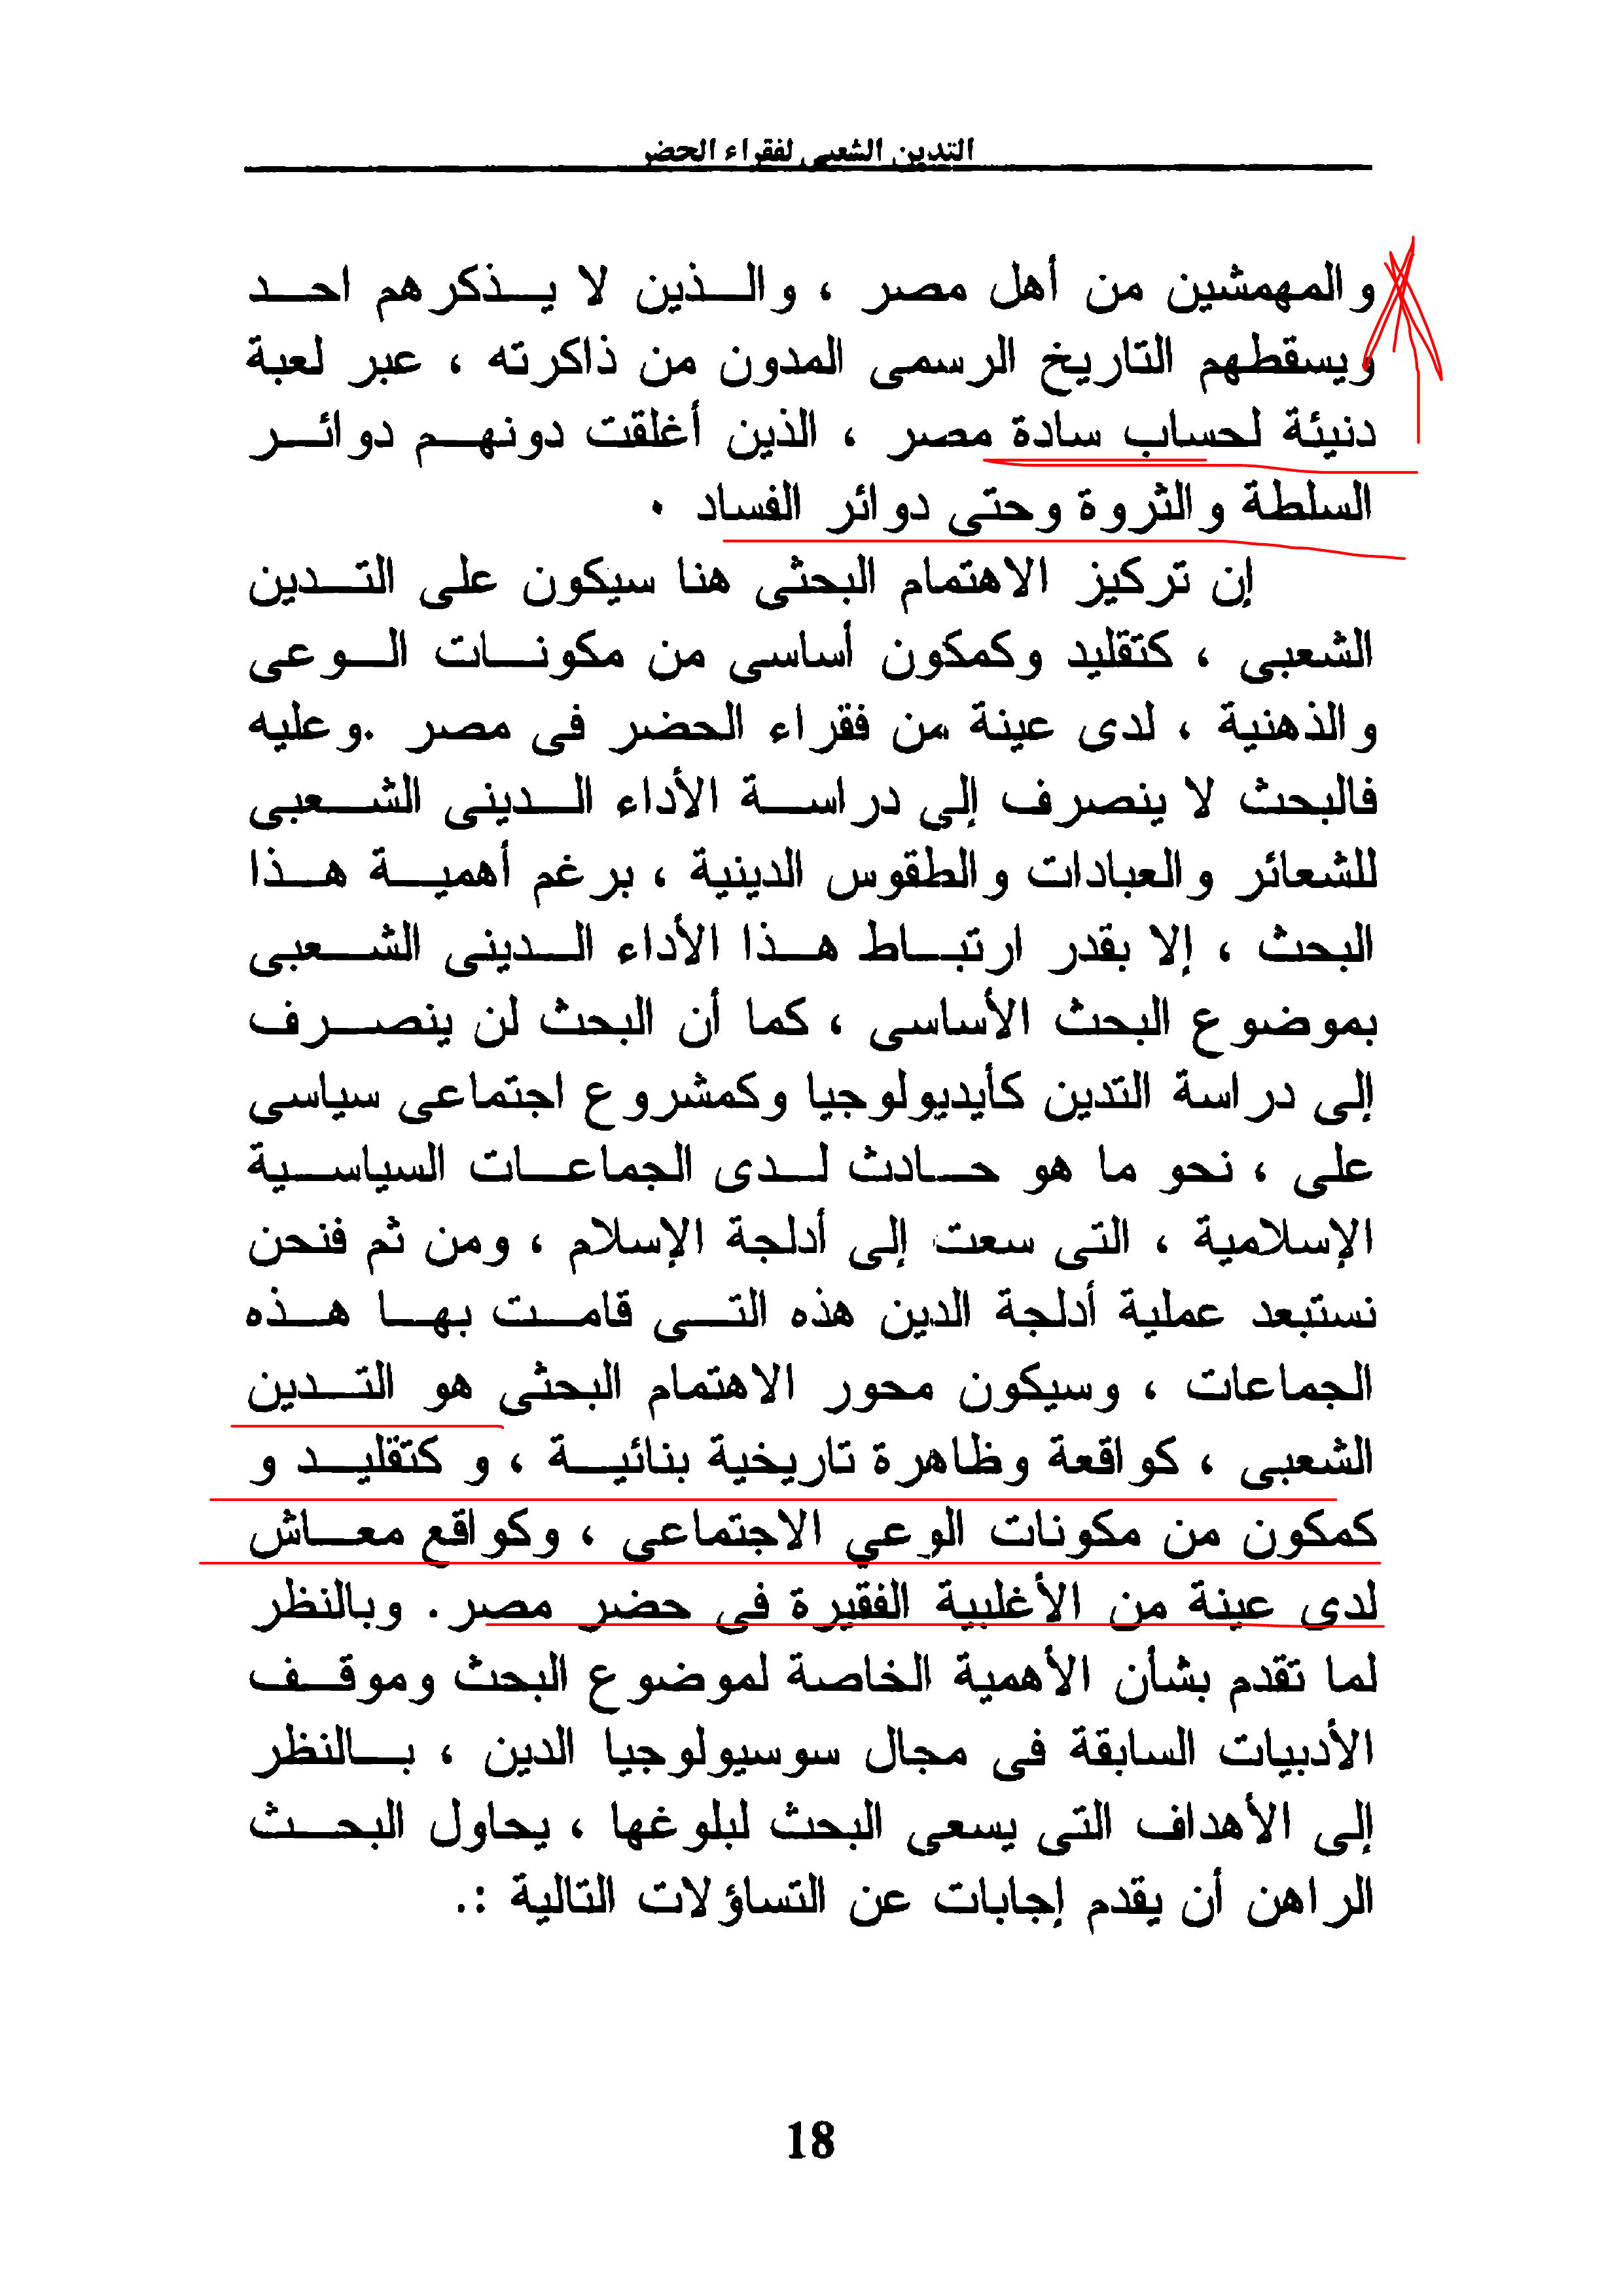 التدين الشعبى لفقراء الحضر
والمهمشين من أهل مصر ، والذين لا يذكرهم احد
ويسقطهم التاريخ الرسمى المدون من ذاكرته ، عبر لعبة
دنيئة لحساب سادة مصر ، الذين أغلقت دونهم دوائر
السلطة والثروة وحتى دوائر الفساد ٠
إن تركيز الاهتمام البحثى هنا سيكون على التدين
الشعبى ، كتقليد وكمكون أساسى من مكونات الوعى
والذهنية ، لدى عينة من فقراء الحضر فى مصر .وعليه
فالبحث لا ينصرف إلى دراسة الأداء الدينى الشعبى
للشعائر والعبادات والطقوس الدينية ، برغم أهمية هذا
البحث ، إلا بقدر ارتباط هذا الأداء الدينى الشعبى
بموضوع البحث الأساسى ، كما أن البحث لن ينصرف
إلى دراسة التدين كأيديولوجيا وكمشروع اجتماعى سياسى
على ، نحو ما هو حادث لدى الجماعات السياسية
الإسلامية ، التى سعت إلى أدلجة الإسلام ، ومن ثم فنحن
نستبعد عملية أدلجة الدين هذه التى قامت بها هذه
الجماعات ، وسيكون محور الاهتمام البحثى هو التدين
الشعبى ، كواقعة وظاهرة تاريخية بنائية ، و كتقليد و
كمكون من مكونات الوعي الاجتماعى ، وكواقع معاش
لدى عينة من الأغلبية الفقيرة فى حضر مصر. وبالنظر
لما تقدم بشأن الأهمية الخاصة لموضوع البحث وموقف
الأدبيات السابقة فى مجال سوسيولوجيا الدين ، بالنظر
إلى الأهداف التى يسعى البحث لبلوغها ، يحاول البحث
الراهن أن يقدم إجابات عن التساؤلات التالية :.
18